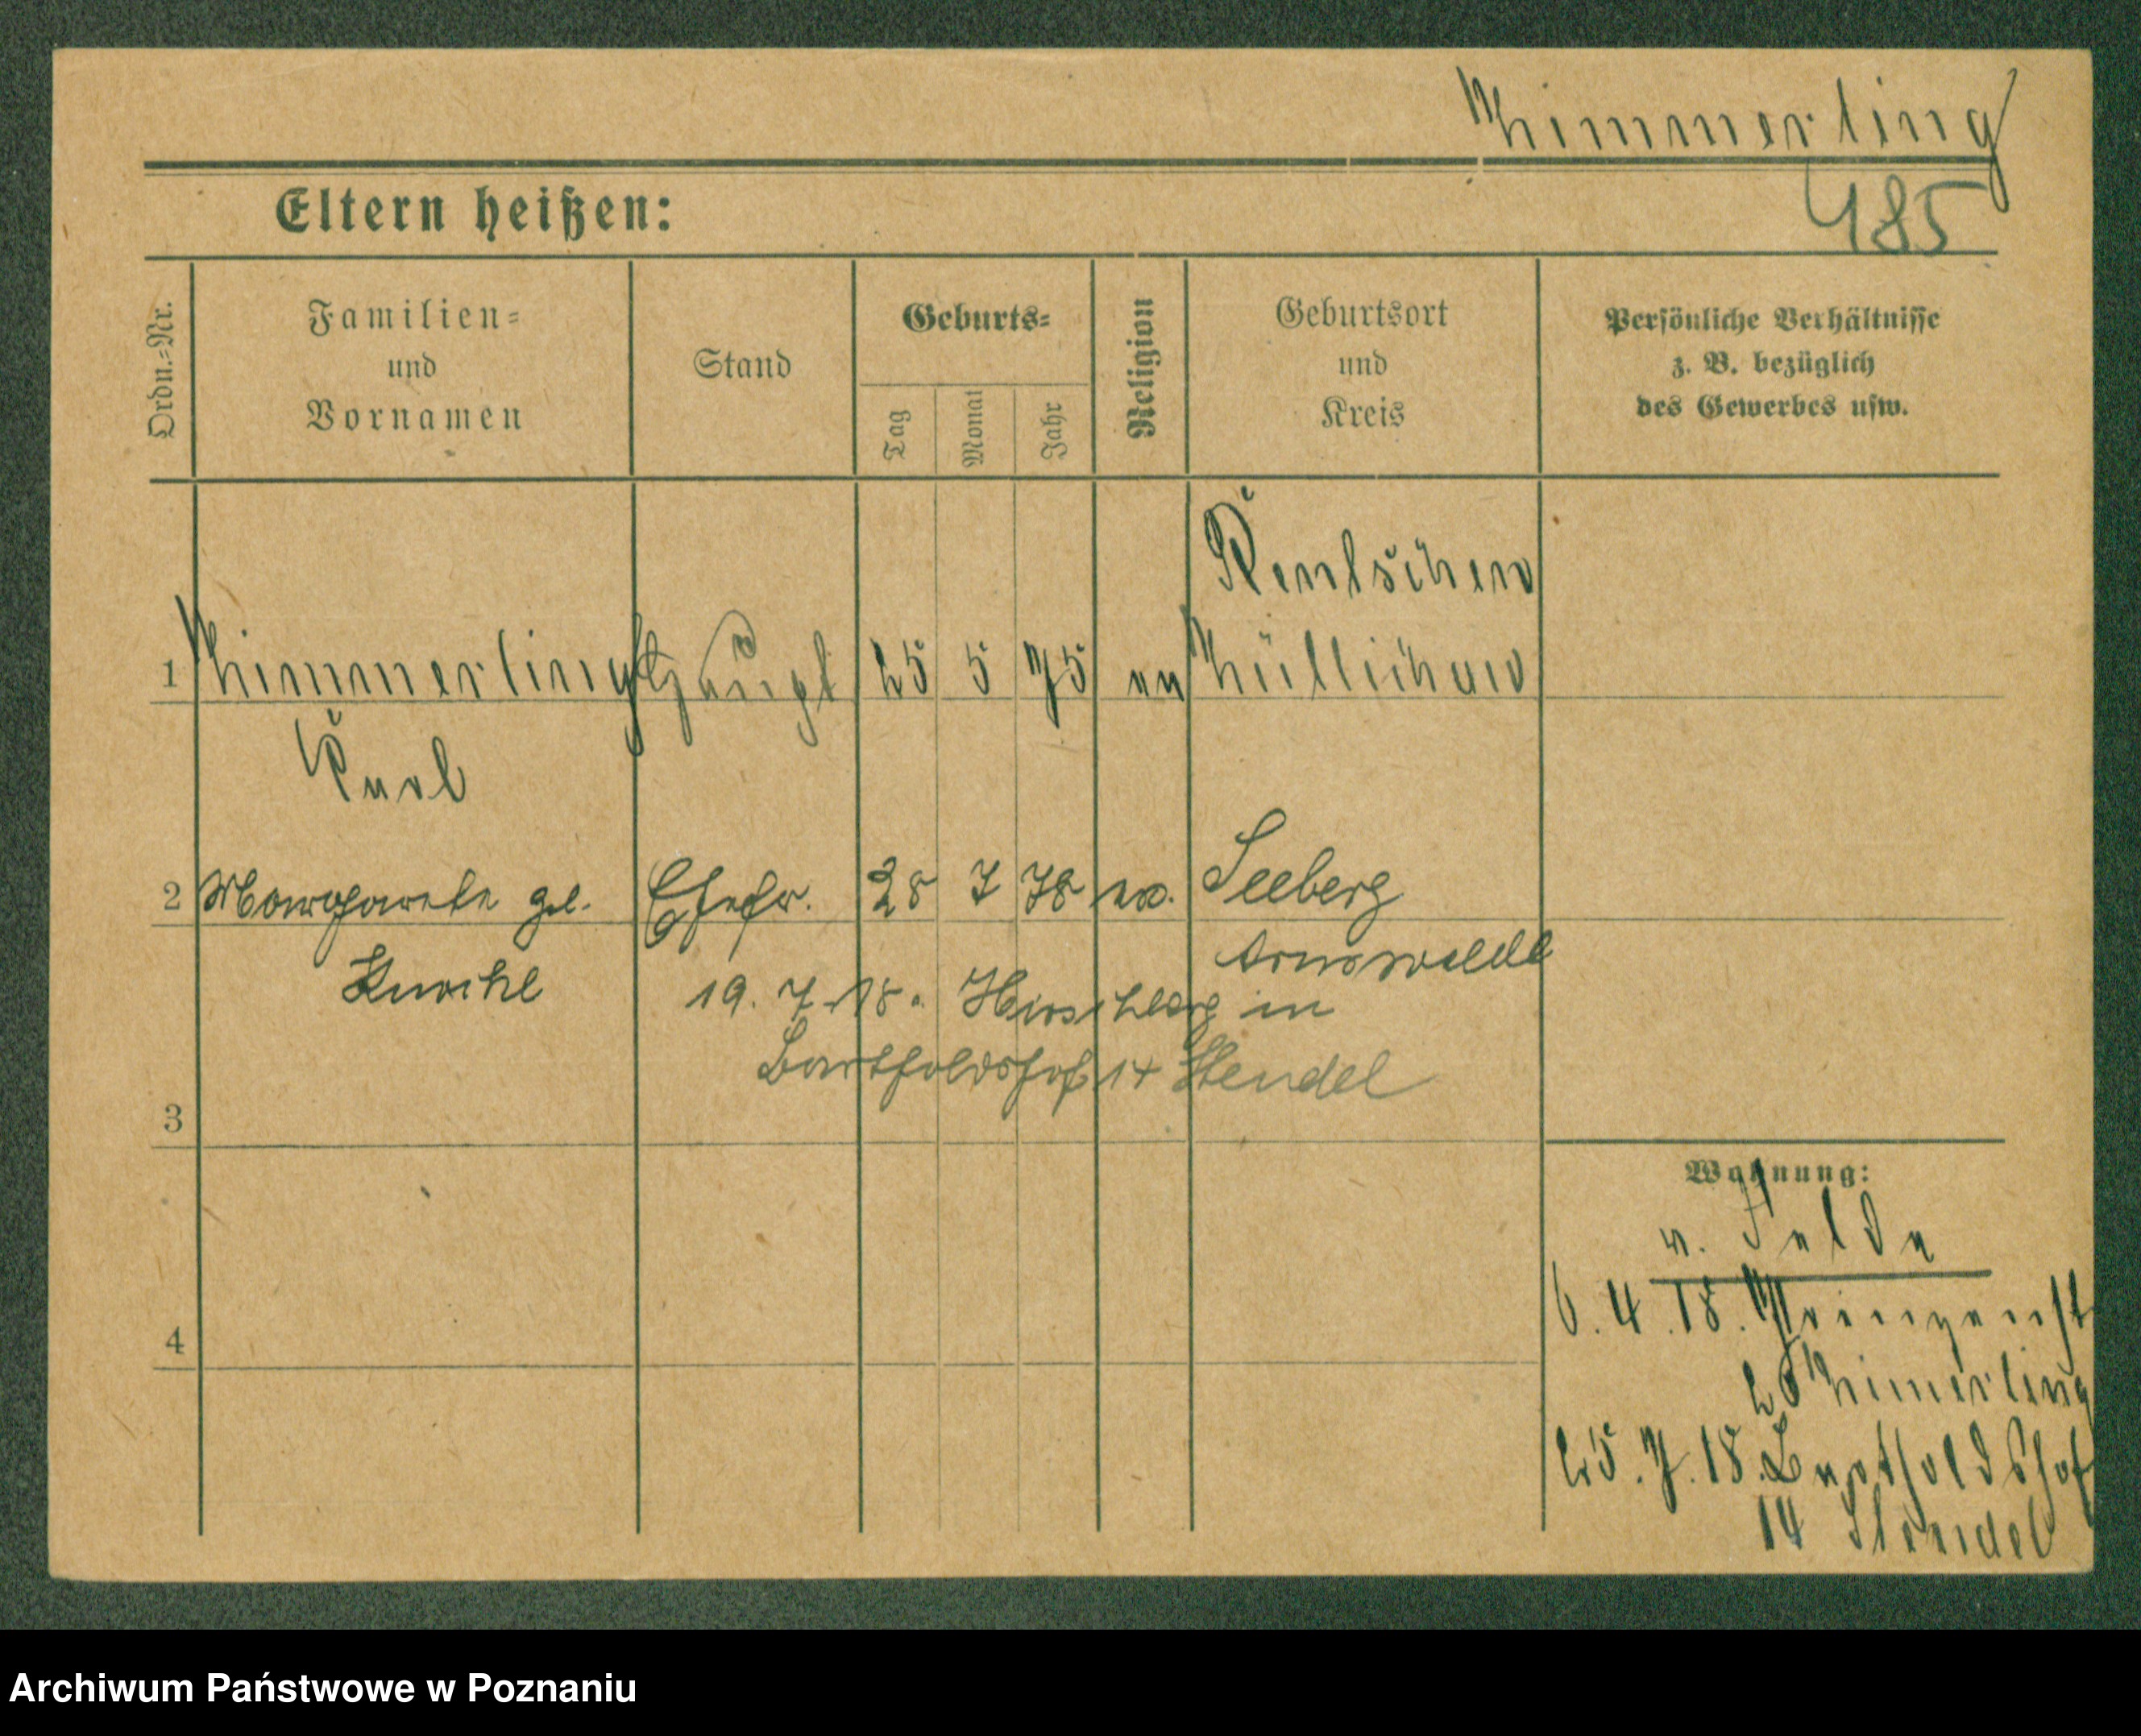 Zimmerling
485
Eltern heißen:
Ordn.-Nr.
Familien-
und
Vornamen
Stand
Geburts-
Tag
Monat
Jahr
Religion
Geburtsort
und
Kreis
Persönliche Verhältnisse
z. B. bezüglich
des Gewerbes usw.
Rentschen
1 Zimmerling 25 5 75 ev Züllichau
Karl
2 Margarete geb. Ehefr. 28 7 78 ev. Seeberg
Arnswalde
19. 7. 18. Hirschberg in
Bartholdshof 14 Stendel
3
Wohnung:
v. Felde
6. 4. 18. Prinzenst
b Zimerling
4
25. 7. 18. Bartholdshof
14 Stendel
Archiwum Państwowe w Poznaniu